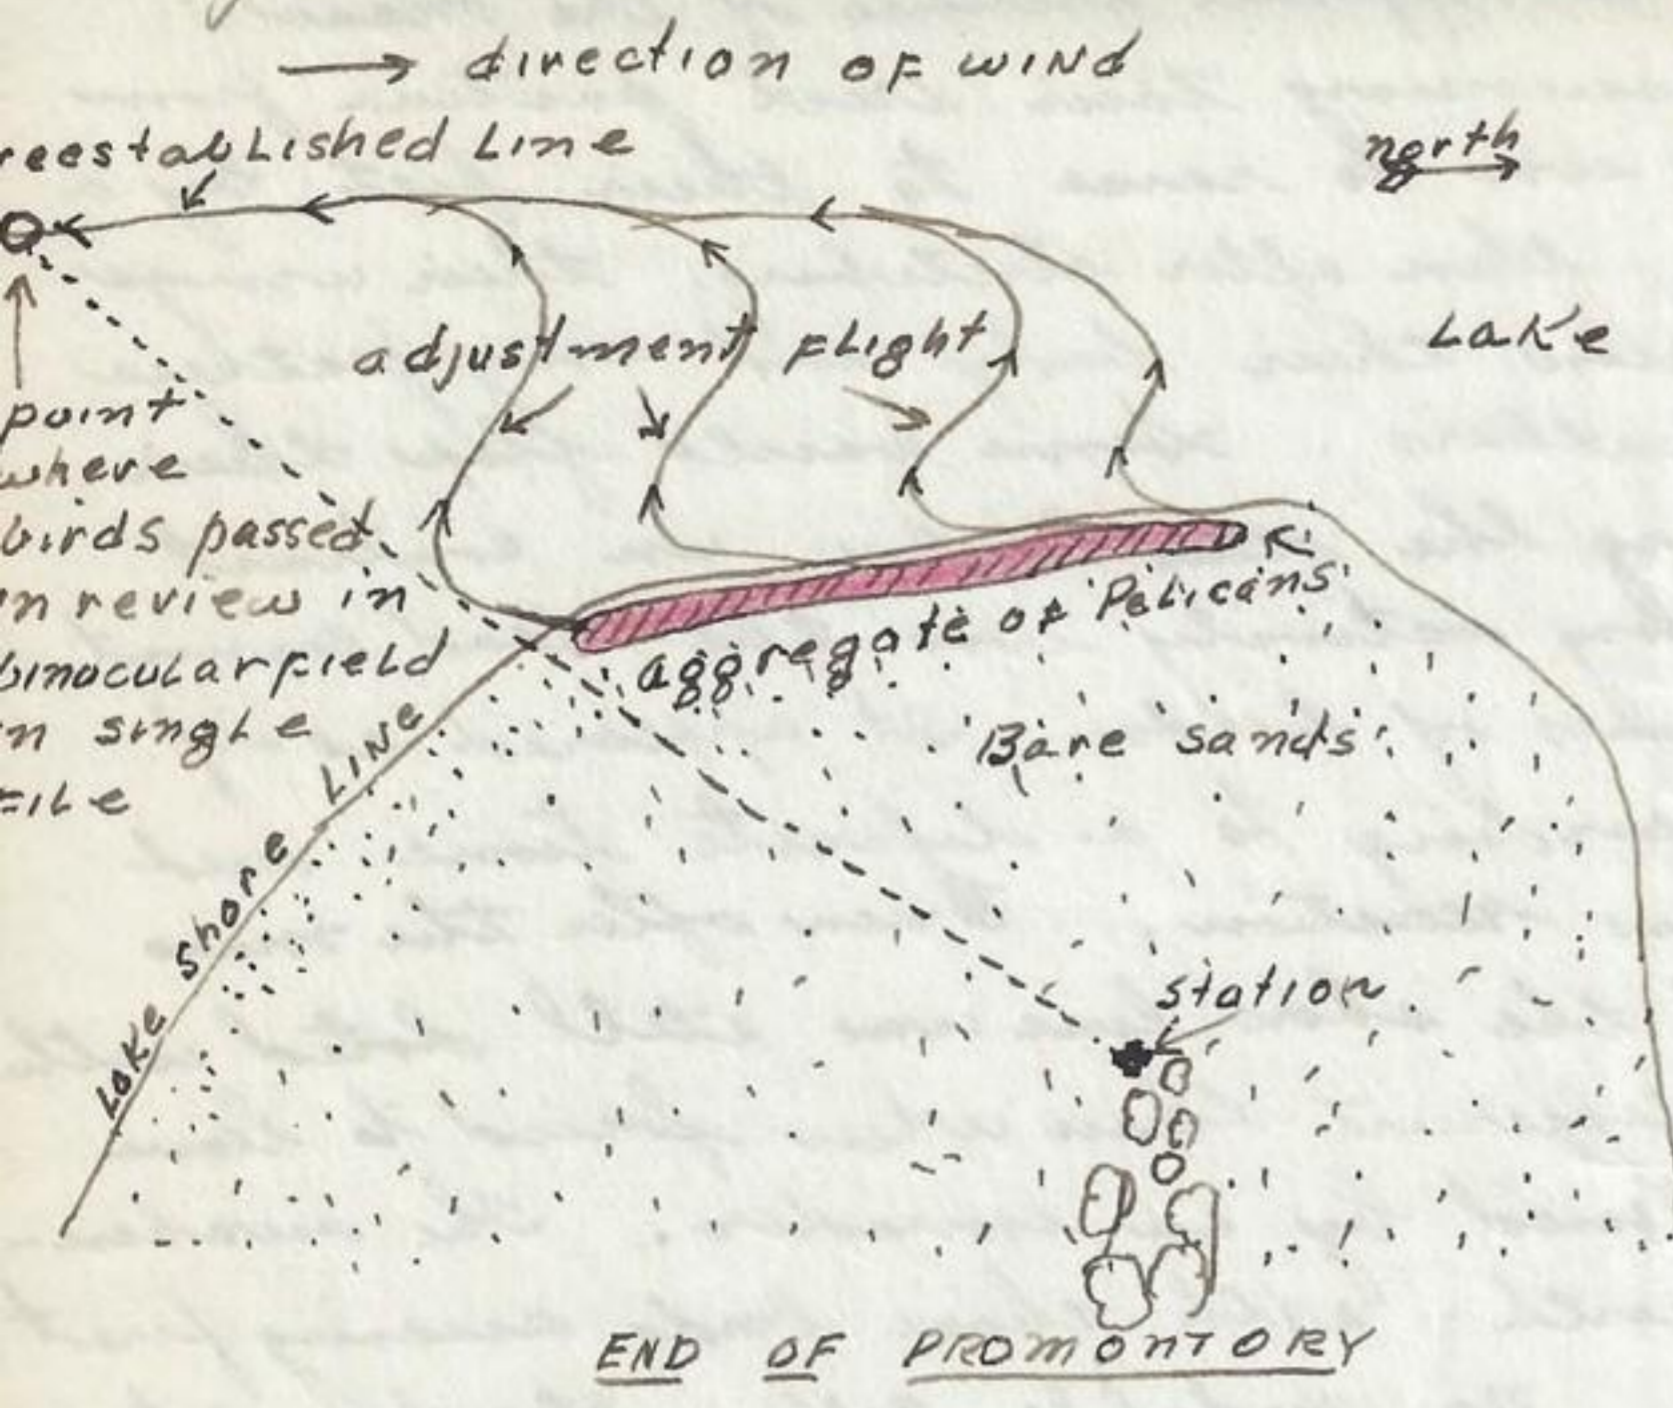 direction of wind
reestablished Line
north
adjustment flight
Lake
point
where
birds passed
in review in
binocular field
in single
file
aggregate of Pelicans
Bare sands
Lake Shore Line
station
END OF PROMONTORY